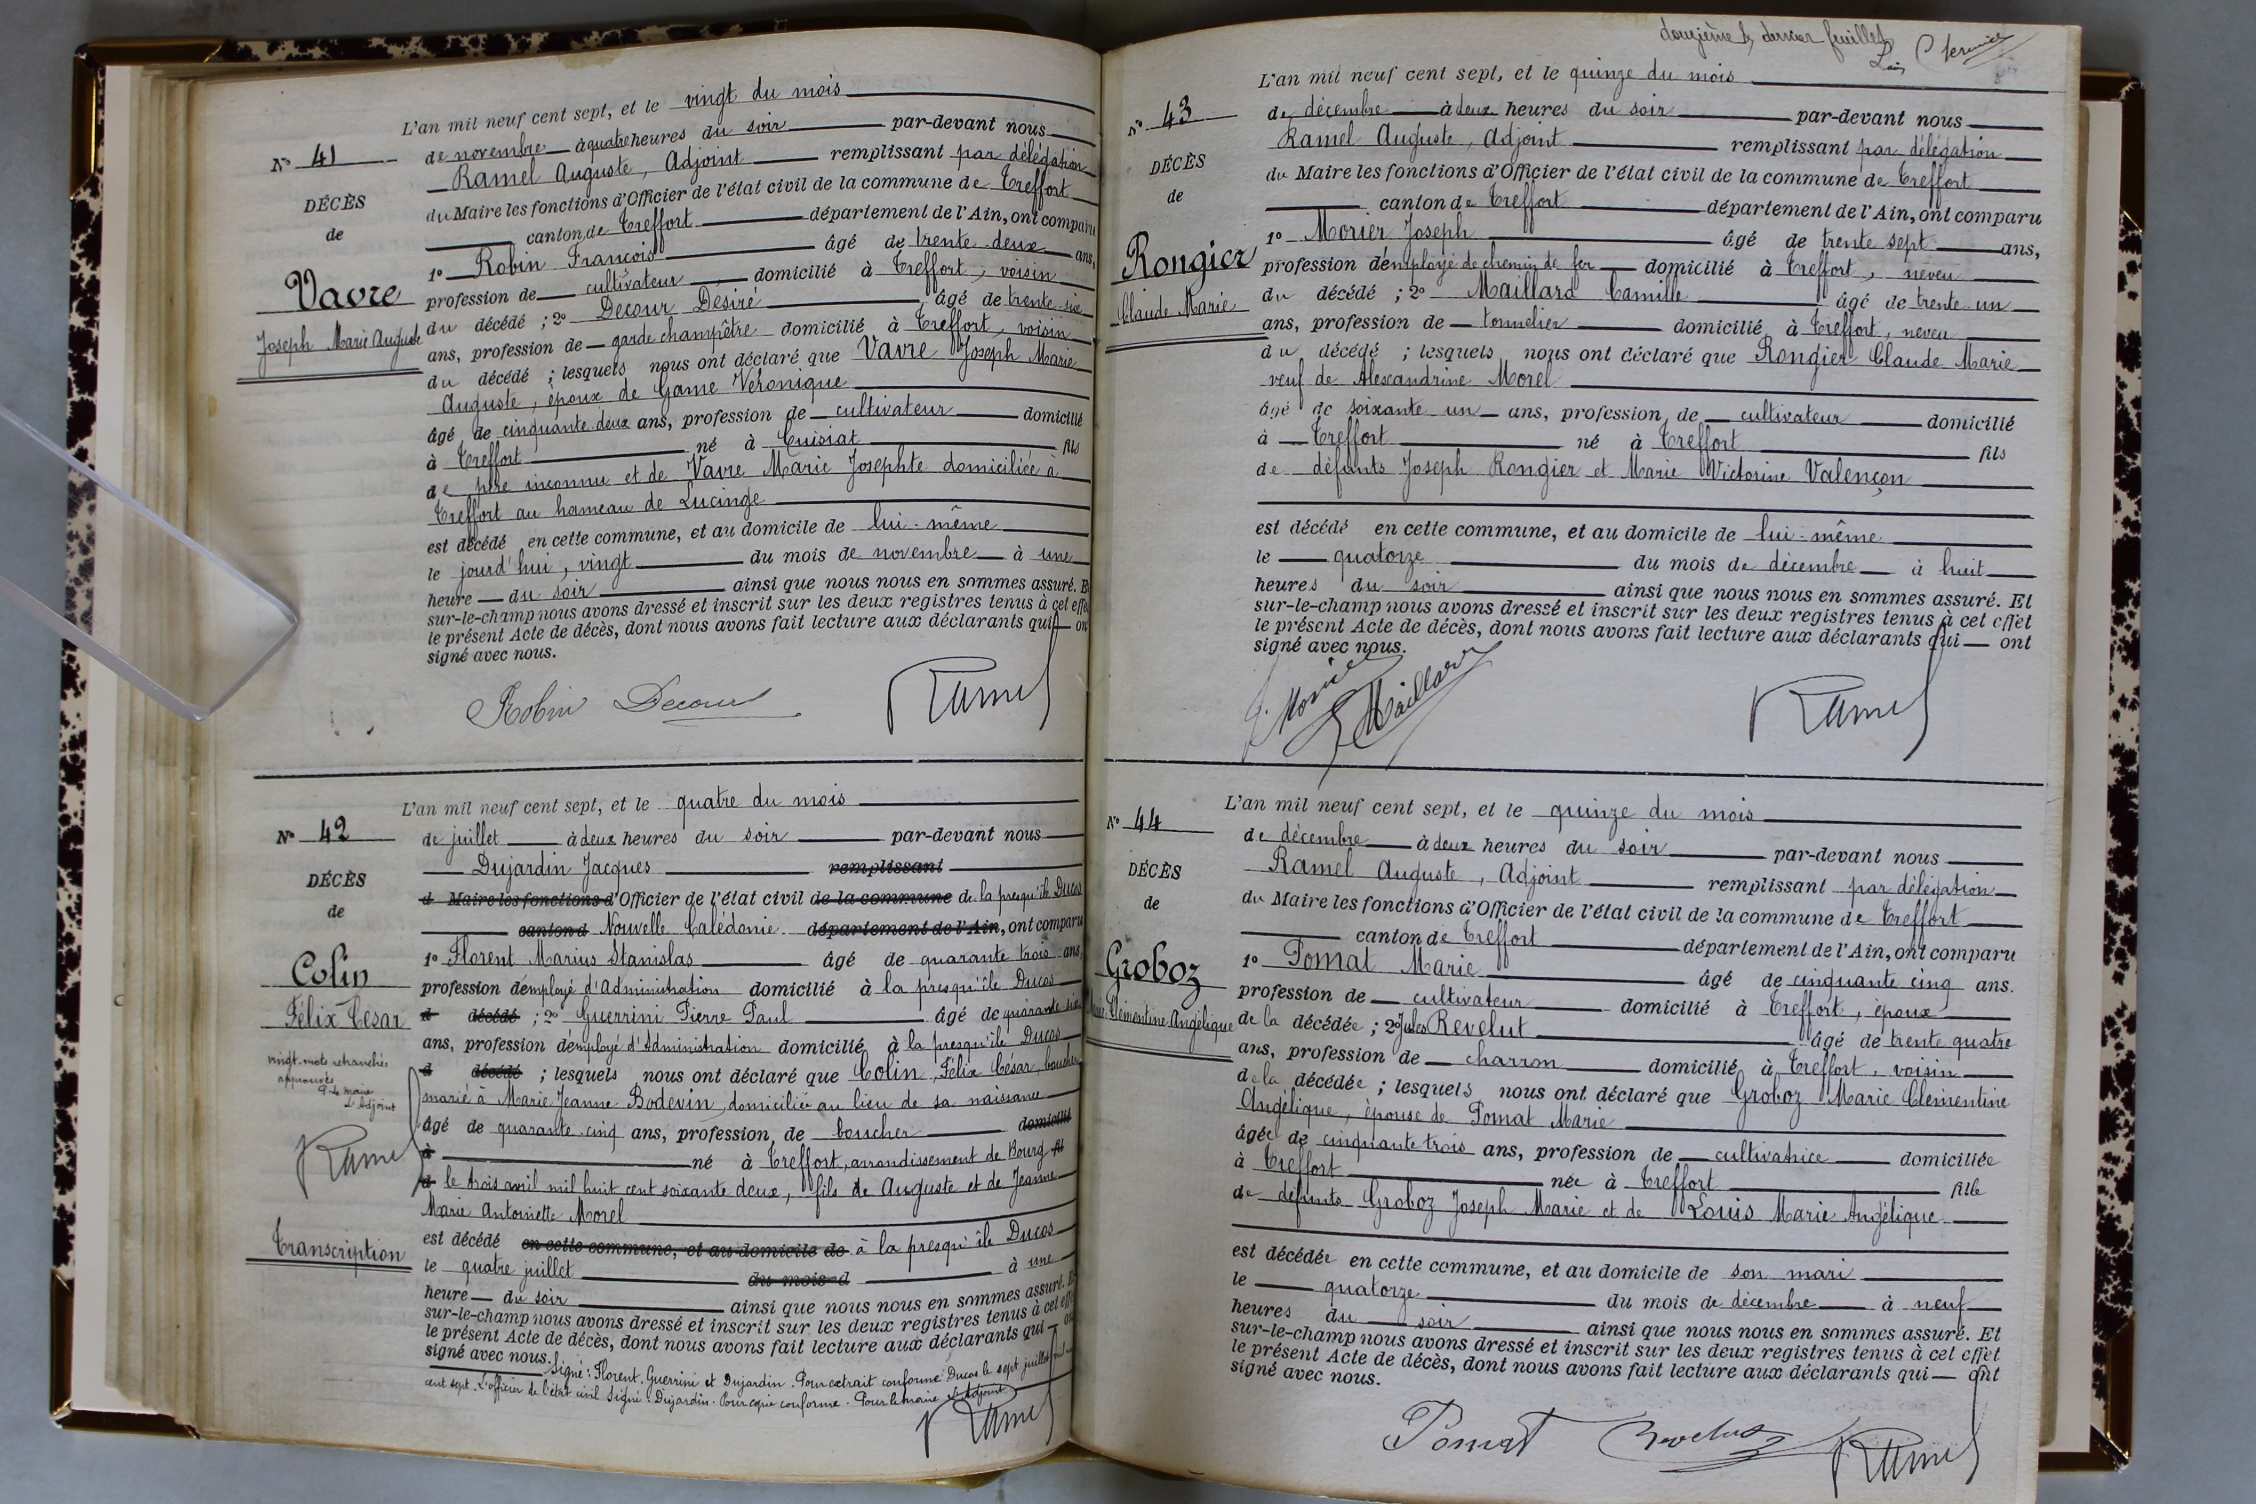 L'an mil neuf cent sept, et le vingt du mois
N° 41
de novembre à quatre heures du soir par-devant nous
Ramel Auguste, Adjoint remplissant par délégation
DÉCÈS
du Maire les fonctions d'Officier de l'état civil de la commune de Treffort
de
canton de Treffort département de l'Ain, ont comparu
1° Robin François âgé de trente deux ans,
Vavre
profession de cultivateur domicilié à Treffort, voisin
Joseph Marie Auguste
du décédé ; 2° Decour Désiré âgé de trente-six
ans, profession de garde champêtre domicilié à Treffort, voisin
du décédé ; lesquels nous ont déclaré que Vavre Joseph Marie
Auguste, époux de Game Véronique
âgé de cinquante deux ans, profession de cultivateur domicilié
à Treffort né à Cuisiat fils
de père inconnu et de Vavre Marie Josephte domiciliée à
Treffort au hameau de Lucinge
est décédé en cette commune, et au domicile de lui-même
le jourd'hui, vingt du mois de novembre à une
heure du soir ainsi que nous nous en sommes assuré. Et
sur-le-champ nous avons dressé et inscrit sur les deux registres tenus à cet effet
le présent Acte de décès, dont nous avons fait lecture aux déclarants qui ont
signé avec nous.
Robin Decour Ramel
L'an mil neuf cent sept, et le quatre du mois
N° 42
de juillet à deux heures du soir par-devant nous
Dujardin Jacques remplissant
DÉCÈS
d Maire les fonctions d'Officier de l'état civil de la commune de la presqu'île Ducos
de
canton d Nouvelle Calédonie département de l'Ain, ont comparu
1° Florent Marius Stanislas âgé de quarante trois ans,
Colin
profession d'employé d'Administration domicilié à la presqu'île Ducos
Félix César
d décédé ; 2° Guerrini Pierre Paul âgé de quarante six
ans, profession d'employé d'Administration domicilié à la presqu'île Ducos
vingt mots retranchés
approuvés
P. le maire
L'Adjoint
Ramel
d décédé ; lesquels nous ont déclaré que Colin, Félix César, boucher
marié à Marie Jeanne Bodevin, domiciliée au lieu de sa naissance
âgé de quarante-cinq ans, profession de boucher domicilié
à né à Treffort, arrondissement de Bourg fil
d le trois avril mil huit cent soixante deux, fils de Auguste et de Jeanne
Marie Antoinette Morel
Transcription
est décédé en cette commune, et au domicile de à la presqu'île Ducos
le quatre juillet du mois d à une
heure du soir ainsi que nous nous en sommes assuré. Et
sur-le-champ nous avons dressé et inscrit sur les deux registres tenus à cet effet
le présent Acte de décès, dont nous avons fait lecture aux déclarants qui ont
signé avec nous. Signé : Florent, Guerrini et Dujardin. Pour extrait conforme Ducos le sept juillet mil neuf
cent sept. L'officier de l'état civil Signé : Dujardin. Pour copie conforme. Pour le maire L'Adjoint
Ramel
douzième & dernier feuillet
L'an mil neuf cent sept, et le quinze du mois
N° 43
de décembre à deux heures du soir par-devant nous
Ramel Auguste, Adjoint remplissant par délégation
DÉCÈS
du Maire les fonctions d'Officier de l'état civil de la commune de Treffort
de
canton de Treffort département de l'Ain, ont comparu
1° Morier Joseph âgé de trente sept ans,
Rongier
profession d'employé de chemin de fer domicilié à Treffort, neveu
Claude Marie
du décédé ; 2° Maillard Camille âgé de trente un
ans, profession de tonnelier domicilié à Treffort, neveu
du décédé ; lesquels nous ont déclaré que Rongier Claude Marie
veuf de Alexandrine Morel
âgé de soixante un ans, profession de cultivateur domicilié
à Treffort né à Treffort fils
de défunts Joseph Rongier et Marie Victorine Valençon
est décédé en cette commune, et au domicile de lui-même
le quatorze du mois de décembre à huit
heures du soir ainsi que nous nous en sommes assuré. Et
sur-le-champ nous avons dressé et inscrit sur les deux registres tenus à cet effet
le présent Acte de décès, dont nous avons fait lecture aux déclarants qui ont
signé avec nous.
J. Morier Maillard Ramel
L'an mil neuf cent sept, et le quinze du mois
N° 44
de décembre à deux heures du soir par-devant nous
Ramel Auguste, Adjoint remplissant par délégation
DÉCÈS
du Maire les fonctions d'Officier de l'état civil de la commune de Treffort
de
canton de Treffort département de l'Ain, ont comparu
1° Pomat Marie âgé de cinquante cinq ans.
Groboz
profession de cultivateur domicilié à Treffort, époux
Marie Clémentine Angélique
de la décédée ; 2° Jules Revelut âgé de trente quatre
ans, profession de charron domicilié à Treffort, voisin
de la décédée ; lesquels nous ont déclaré que Groboz Marie Clémentine
Angélique, épouse de Pomat Marie
âgée de cinquante trois ans, profession de cultivatrice domiciliée
à Treffort née à Treffort fille
de défunts Groboz Joseph Marie et de Louis Marie Angélique
est décédée en cette commune, et au domicile de son mari
le quatorze du mois de décembre à neuf
heures du soir ainsi que nous nous en sommes assuré. Et
sur-le-champ nous avons dressé et inscrit sur les deux registres tenus à cet effet
le présent Acte de décès, dont nous avons fait lecture aux déclarants qui ont
signé avec nous.
Pomat Revelut Ramel